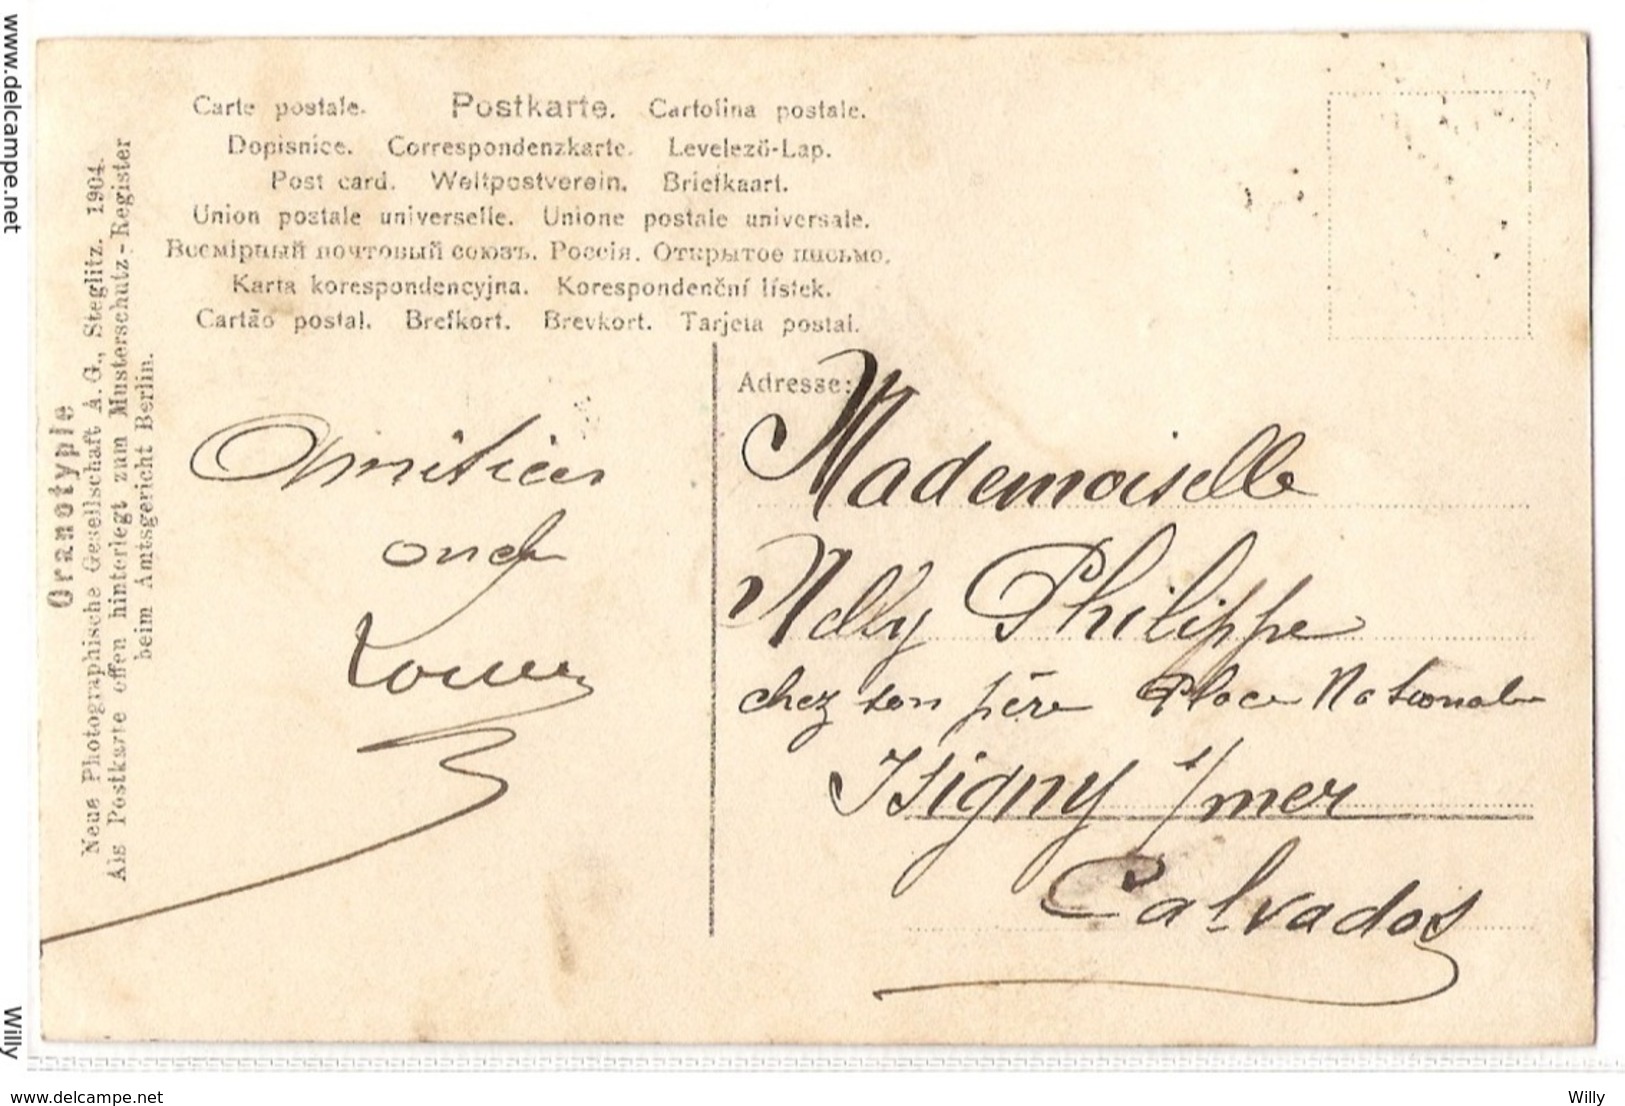 Carte postale. Postkarte. Cartolina postale.
Dopisnice. Correspondenzkarte. Levelező-Lap.
Post card. Weltpostverein. Briefkaart.
Union postale universelle. Unione postale universale.
Всемірный почтовый союзъ. Россія. Открытое письмо.
Karta korespondencyjna. Korespondenční lístek.
Cartão postal. Brefkort. Brevkort. Tarjeta postal.
Oranotypie
Neue Photographische Gesellschaft A.G., Steglitz. 1904.
Als Postkarte offen hinterlegt zum Musterschutz-Register
beim Amtsgericht Berlin.
Amitiés
Adresse:
Mademoiselle
Nelly Philippe
chez son père Place Nationale
Isigny s/mer
Calvados
www.delcampe.net
Willy
www.delcampe.net
Willy